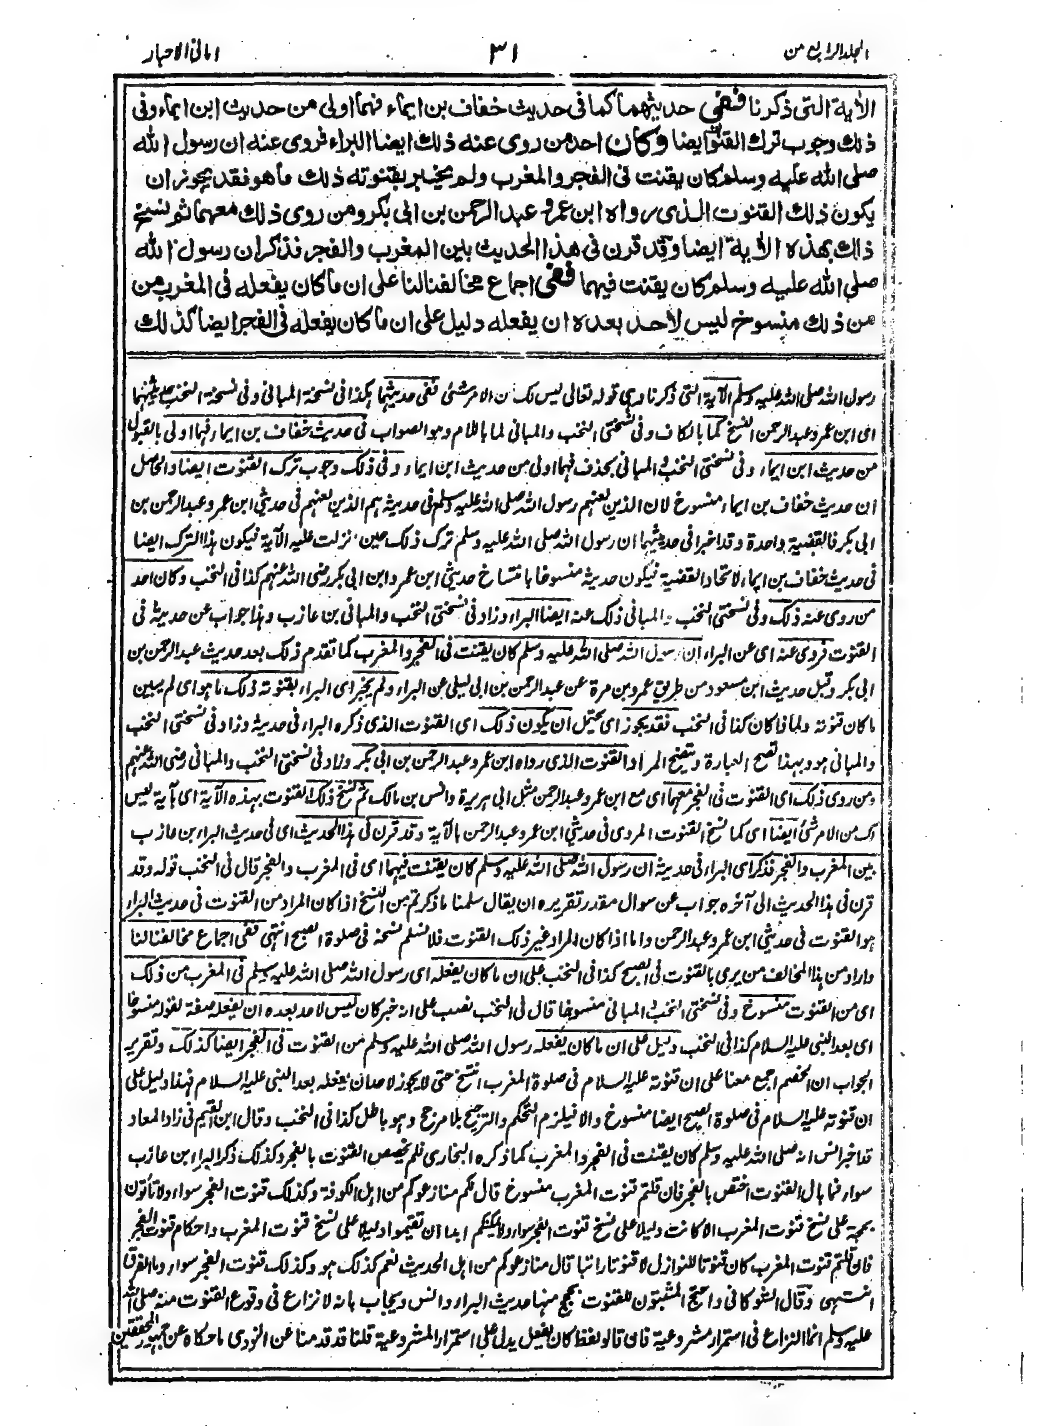 المجلد الرابع من ٣١ امانی الاحبار
الآية التى ذكرنا ففى حديثهما كما فى حديث خفاف بن ايماء فهما اولى من حديث ابن ايماء وفى
ذلك وجوب ترك القنوت ايضا وكان احد من روى عنه ذلك ايضا البراء فروى عنه ان رسول الله
صلى الله عليه وسلم كان يقنت فى الفجر والمغرب ولم يخبر بقنوته ذلك ما هو فقد يجوز ان
يكون ذلك القنوت الذى رواه ابن عمر و عبد الرحمن بن ابى بكر ومن روى ذلك معهما ثم نسخ
ذلك بهذه الآية ايضا وقد قرن فى هذا الحديث بين المغرب والفجر فذكر ان رسول الله
صلى الله عليه وسلم كان يقنت فيهما ففى اجماع مخالفنا لنا على ان ما كان يفعله فى المغرب من
من ذلك منسوخ ليس لاحد بعده ان يفعله دليل على ان ما كان يفعله فى الفجر ايضا كذلك
رسول الله صلى الله عليه وسلم الآية التى ذكرنا وهى قوله تعالى ليس لك من الامر شئ ففى حديثهما هكذا فى نسخة المبانى وفى نسخة النخب حديثهما
اى ابن عمر وعبد الرحمن النسخ كما بالكاف وفى نسختى النخب والمبانى لما باللام وهو الصواب فى حديث خفاف بن ايماء فهما اولى بالقبول
من حديث ابن ايماء وفى نسختى النخب والمبانى بحذف فهما اولى من حديث ابن ايماء وفى ذلك وجوب ترك القنوت ايضا والحاصل
ان حديث خفاف بن ايماء منسوخ لان الذين يعنهم رسول الله صلى الله عليه وسلم فى حديثه هم الذين يعنهم فى حديثى ابن عمر وعبد الرحمن بن
ابى بكر فالقضية واحدة وقد اخبرا فى حديثيهما ان رسول الله صلى الله عليه وسلم ترك ذلك حين نزلت عليه الآية فيكون هذا الترك ايضا
فى حديث خفاف بن ايماء لاتحاد القضية فيكون حديثه منسوخا بانتساخ حديثى ابن عمر وابن ابى بكر رضى الله عنهم كذا فى النخب وكان احد
من روى عنه ذلك وفى نسختى النخب والمبانى ذلك عنه ايضا البراء وزاد فى نسختى النخب والمبانى بن عازب وهذا جواب عن حديثه فى
القنوت فروى عنه اى عن البراء ان رسول الله صلى الله عليه وسلم كان يقنت فى الفجر والمغرب كما تقدم ذلك بعد حديث عبد الرحمن بن
ابى بكر وقبل حديث ابن مسعود من طريق عمرو بن مرة عن عبد الرحمن بن ابى ليلى عن البراء ولم يخبر اى البراء بقنوته ذلك ما هو اى لم يبين
ما كان قنوته ولماذا كان كذا فى النخب فقد يجوز اى يحتمل ان يكون ذلك اى القنوت الذى ذكره البراء فى حديثه وزاد فى نسختى النخب
والمبانى هو وبهذا تصح العبارة ويتضح المراد القنوت الذى رواه ابن عمر وعبد الرحمن بن ابى بكر وزاد فى نسختى النخب والمبانى رضى الله عنهم
ومن روى ذلك اى القنوت فى الفجر معهما اى مع ابن عمر وعبد الرحمن مثل ابى هريرة وانس بن مالك ثم نسخ ذلك القنوت بهذه الآية اى بآية ليس
لك من الامر شئ ايضا اى كما نسخ القنوت المروى فى حديثى ابن عمر وعبد الرحمن بالآية وقد قرن فى هذا الحديث اى فى حديث البراء بن عازب
بين المغرب والفجر فذكر اى البراء فى حديثه ان رسول الله صلى الله عليه وسلم كان يقنت فيهما اى فى المغرب والفجر قال فى النخب قوله وقد
قرن فى هذا الحديث الى آخره جواب عن سوال مقدر تقريره ان يقال سلمنا ما ذكرتم من النسخ اذا كان المراد من القنوت فى حديث البراء
هو القنوت فى حديثى ابن عمر وعبد الرحمن واما اذا كان المراد غير ذلك القنوت فلا نسلم نسخه فى صلوة الصبح انتهى ففى اجماع مخالفنا لنا
واراد من هذا المخالف من يرى بالقنوت فى الصبح كذا فى النخب على ان ما كان يفعله اى رسول الله صلى الله عليه وسلم فى المغرب من ذلك
اى من القنوت منسوخ وفى نسختى النخب والمبانى منسوخا قال فى النخب نصب على انه خبر كان ليس لاحد بعده ان يفعله صفة لقوله منسوخا
اى بعد النبى عليه السلام كذا فى النخب دليل على ان ما كان يفعله رسول الله صلى الله عليه وسلم من القنوت فى الفجر ايضا كذلك وتقرير
الجواب ان الخصم اجمع معنا على ان قنوته عليه السلام فى صلوة المغرب انتسخ حتى لا يجوز لاحد ان يفعله بعد النبى عليه السلام فهذا دليل على
ان قنوته عليه السلام فى صلوة الصبح ايضا منسوخ والا فيلزم التحكم والترجيح بلا مرجح وهو باطل كذا فى النخب وقال ابن القيم فى زاد المعاد
قد اخبر انس انه صلى الله عليه وسلم كان يقنت فى الفجر والمغرب كما ذكره البخارى فلم يخصص القنوت بالفجر وكذلك ذكر البراء ابن عازب
سواء فما بال القنوت اختص بالفجر فان قلتم قنوت المغرب منسوخ قال لكم منازعوكم من اهل الكوفة وكذلك قنوت الفجر سواء ولا تأتون
بحجة على نسخ قنوت المغرب الا كانت دليلا على نسخ قنوت الفجر سواء ولا يمكنكم ابدا ان تقيموا دليلا على نسخ قنوت المغرب واحكام قنوت الفجر
فان قلتم قنوت المغرب كان قنوتا للنوازل لا قنوتا راتبا قال منازعوكم من اهل الحديث نعم كذلك هو وكذلك قنوت الفجر سواء وما الفرق
انتهى وقال الشوكانى واحتج المثبتون للقنوت بحجج منها حديث البراء وانس ويجاب بانه لا نزاع فى وقوع القنوت منه صلى الله
عليه وسلم انما النزاع فى استمرار مشروعيته فان قالوا لفظ كان يفعل يدل على استمرار المشروعية قلنا قد قدمنا عن النووى ما حكاه عن جمهور المحققين